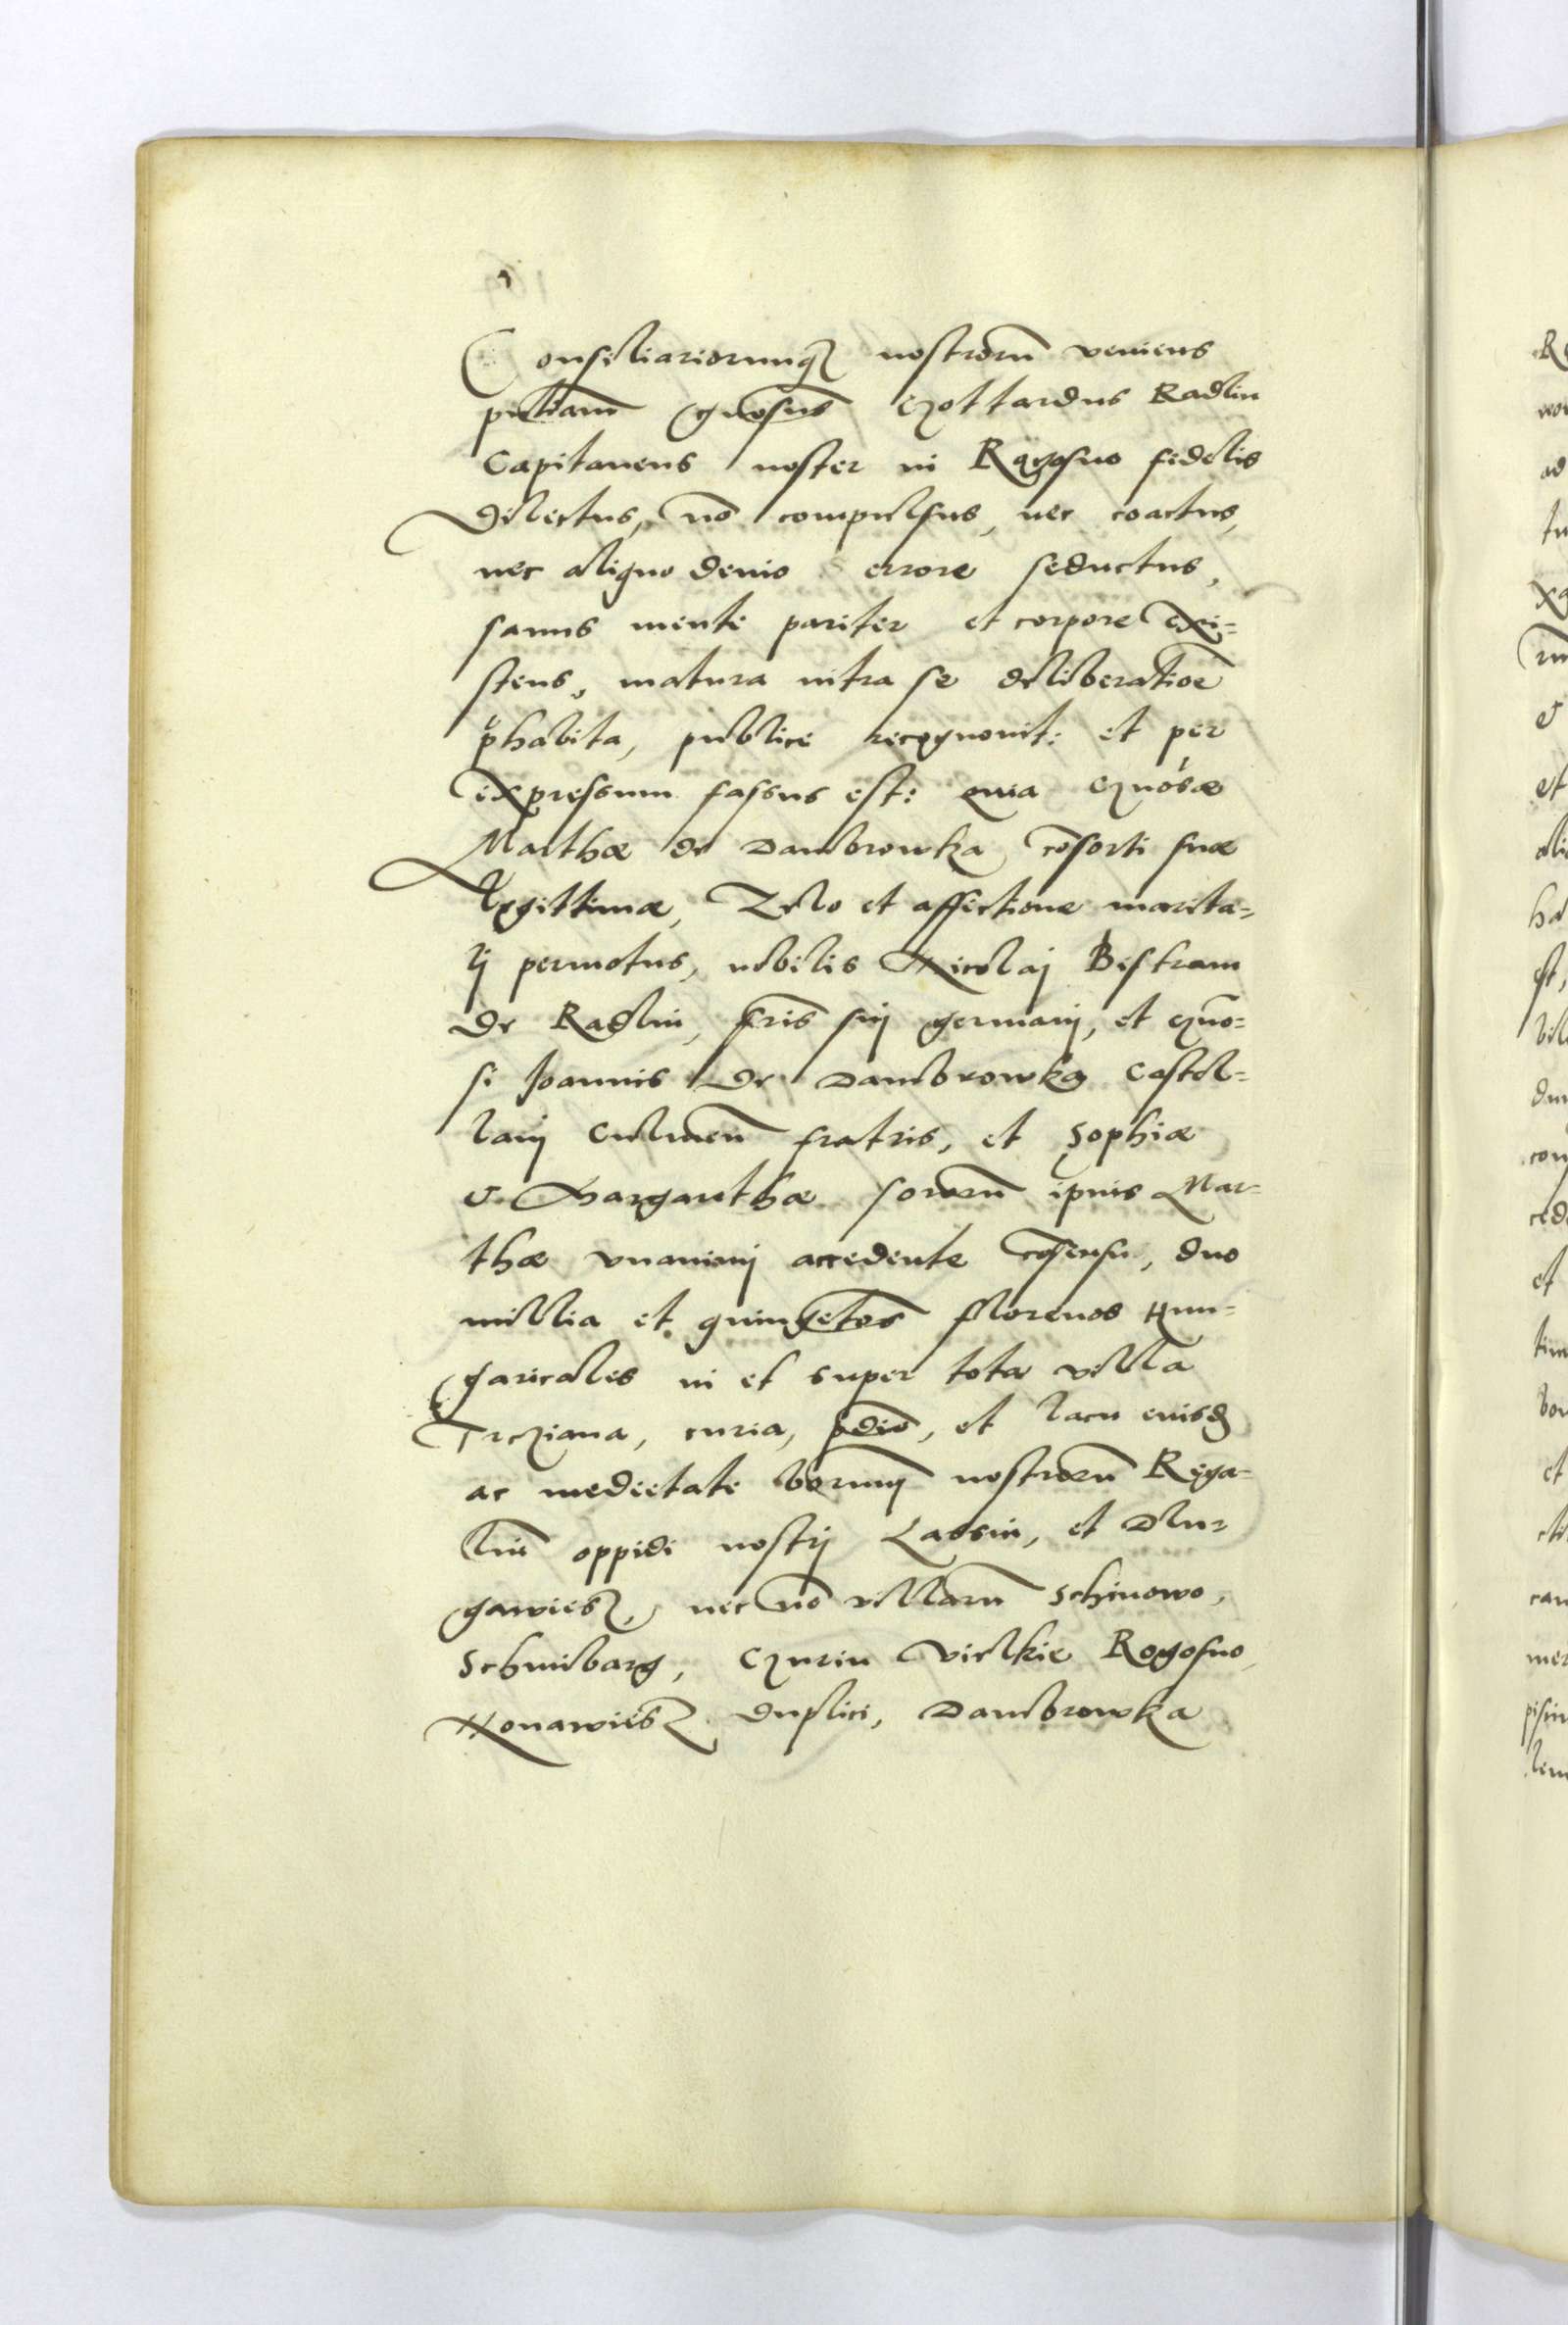 Consiliariorumq nostrorū veniens
pntiam gnosus Gottardus Radlin
Capitaneus noster in Rogosno fidelis
dilectus, nō compulsus, nec coactus,
nec aliquo devio errore seductus,
sanus mente pariter et corpore exi=
stens, matura intra se deliberatiōe
phabita, publice recognovit: et per
expressum fassus est: quia Gnosæ
Marthæ de Dambrowka cōsorti suæ
Legittimæ, Zelo et affectione marita=
lj permotus, nobilis Nicolaj Bistram
de Radlin, fris suj germanj, et Gno=
si Joannis de Dambrowka Castel=
lanj Culmeñ fratris, et Sophiæ
& Margarethæ sororū ipsius Mar=
thæ vnanimj accedente cōsensu, duo
millia et quingētos florenos Hun=
garicales in et super tota villa
Trcziana, curia, pdio, et lacu eiusd
ac medietate bonorum nostrorū Rega=
liū oppidi nostrj Lassin, et Dlu=
gawiesz, nec nō villarū Schinowo,
Schuibarg, Gurin Vielkie Rogosno,
Nonawiesz duplici, Dambrowka